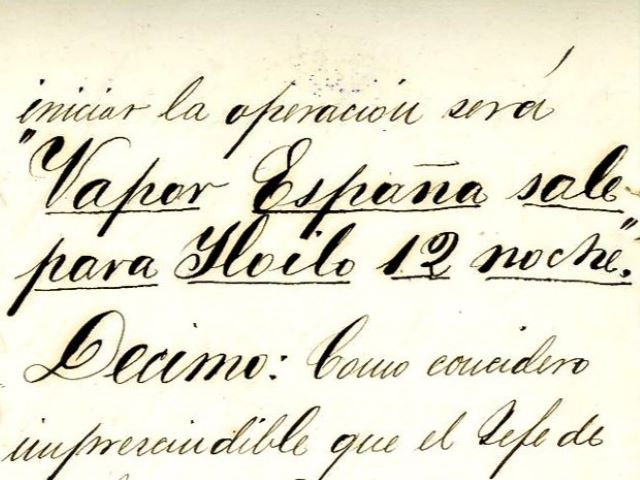 iniciar la operación será
"Vapor España sale
para Iloilo 12 noche".
Decimo: Como concidero
imprescindible que el Jefe de